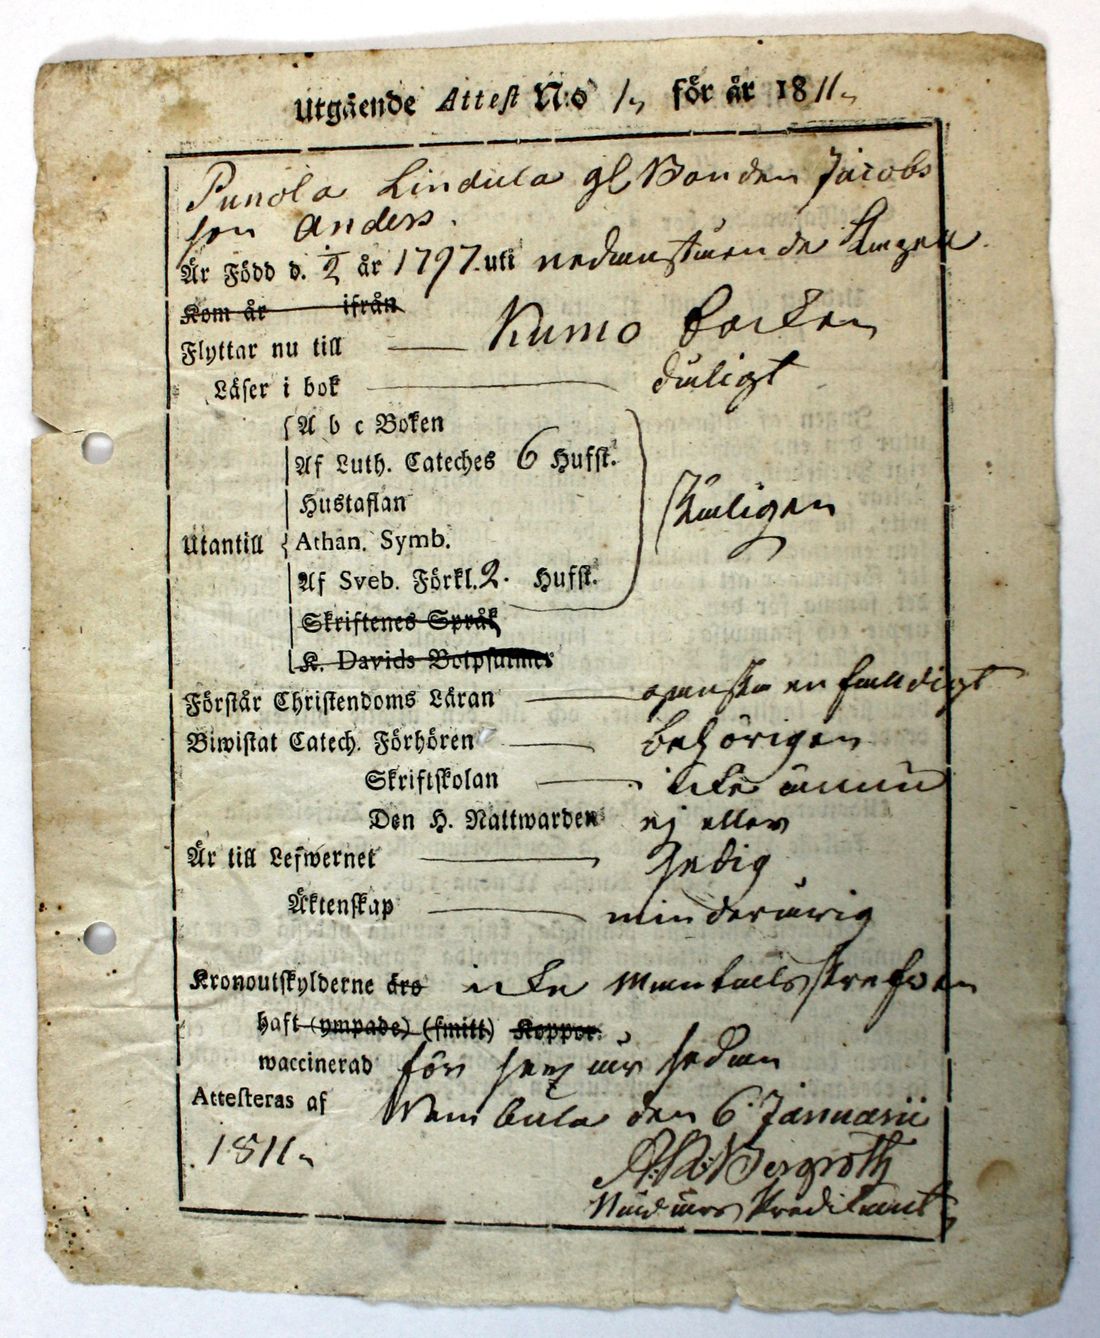 Utgående Attest N:o 1, för år 1811,
Punola Lindula gl Bonden Jacobs
son Anders.
Är Född d. 1/2 år 1797. uti nedanstående
Kom år ifrån
Flyttar nu till Kumo Socken
Läser i bok duligt
A b c Boken
Af Luth. Cateches 6 Hufst.
Hustaflan
Utantill Athan. Symb.
Af Sveb. Förkl. 2. Hufst.
Skriftenes Språk
K. Davids Botpsalmer
Förstår Christendoms Läran enfaldigt
Biwistat Catech. Förhören behörigen
Skriftskolan icke ännu
Den H. Nattwarden ej eller
Är till Lefwernet sedig
Äktenskap minderårig
Kronoutskylderne äro icke Mantalsskrefven
haft (ympade) (smitt) Koppor
waccinerad för sex år sedan
Attesteras af den 6 Januarii
1811.
Bergroth
Predikant